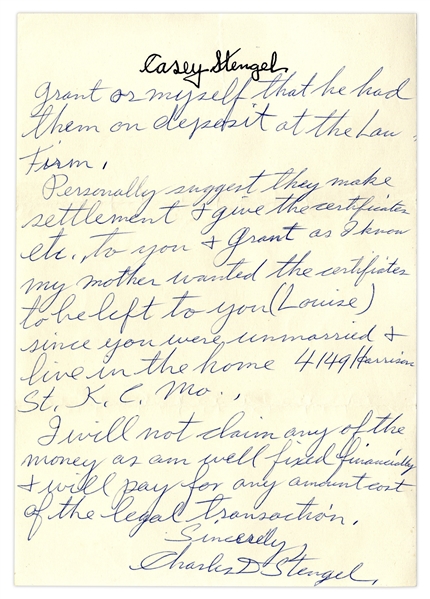 Casey Stengel
Grant or myself that he had
them on deposit at the Law
Firm.
Personally suggest they make
settlement & give the certificates
etc., to you & Grant as I know
my mother wanted the certificates
to be left to you (Louise)
since you were unmarried &
live in the home 4149 Harrison
St. K. C. Mo..
I will not claim any of the
money as am well fixed financially
& will pay for any amount cost
of the legal transaction.
Sincerely,
Charles D Stengel.